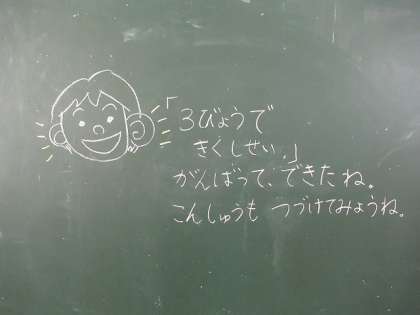 「3びょうで
きくしせい。」
がんばって、できたね。
こんしゅうも つづけてみょうね。